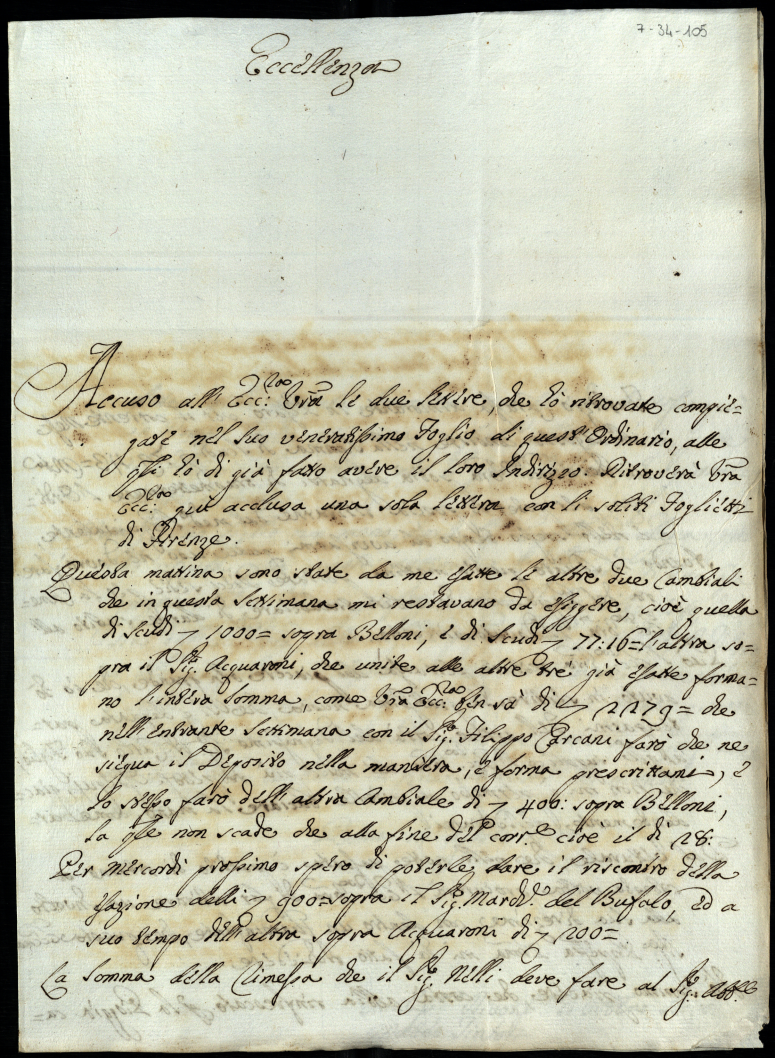 7-34-105
Eccellenza
Accuso all' Ecc:za Vrã le due lettere, che hò ritrovate compie=
gate nel suo veneratissimo Foglio di quest'Ordinario, alle
qli hò di già fatto avere il loro Indirizzo. Ritroverà Vrã
Ecc:za qui acclusa una sola lettera con li soliti Foglietti
di Firenze.
Questa mattina sono state da me esatte le altre due Cambiali
che in questa settimana mi restavano da esiggere, cioè quella
di Scudi 1000= sopra Belloni, e di Scudi 77:16= l'altra so=
pra il Sig. Acquaroni, che unite alle altre trè già esatte forma=
no l'intera somma, come Vrã Ecc:za ben sà di 2279= che
nell'entrante Settimana con il Sig. Filippo Carcani farò che ne
siegua il Deposito nella maniera, e forma prescrittami, e
lo stesso farò dell'altra Cambiale di 400: sopra Belloni,
la qle non scade che alla fine del corr.e cioè il dì 28:
Per mercordì prossimo spero di poterle dare il riscontro della
esazione delli 900= sopra il Sig. March. del Bufalo, ed a
suo tempo dell'altra sopra Acquaroni di 200=
La somma della Rimessa che il Sig. Nelli deve fare al Sig. Abb.e